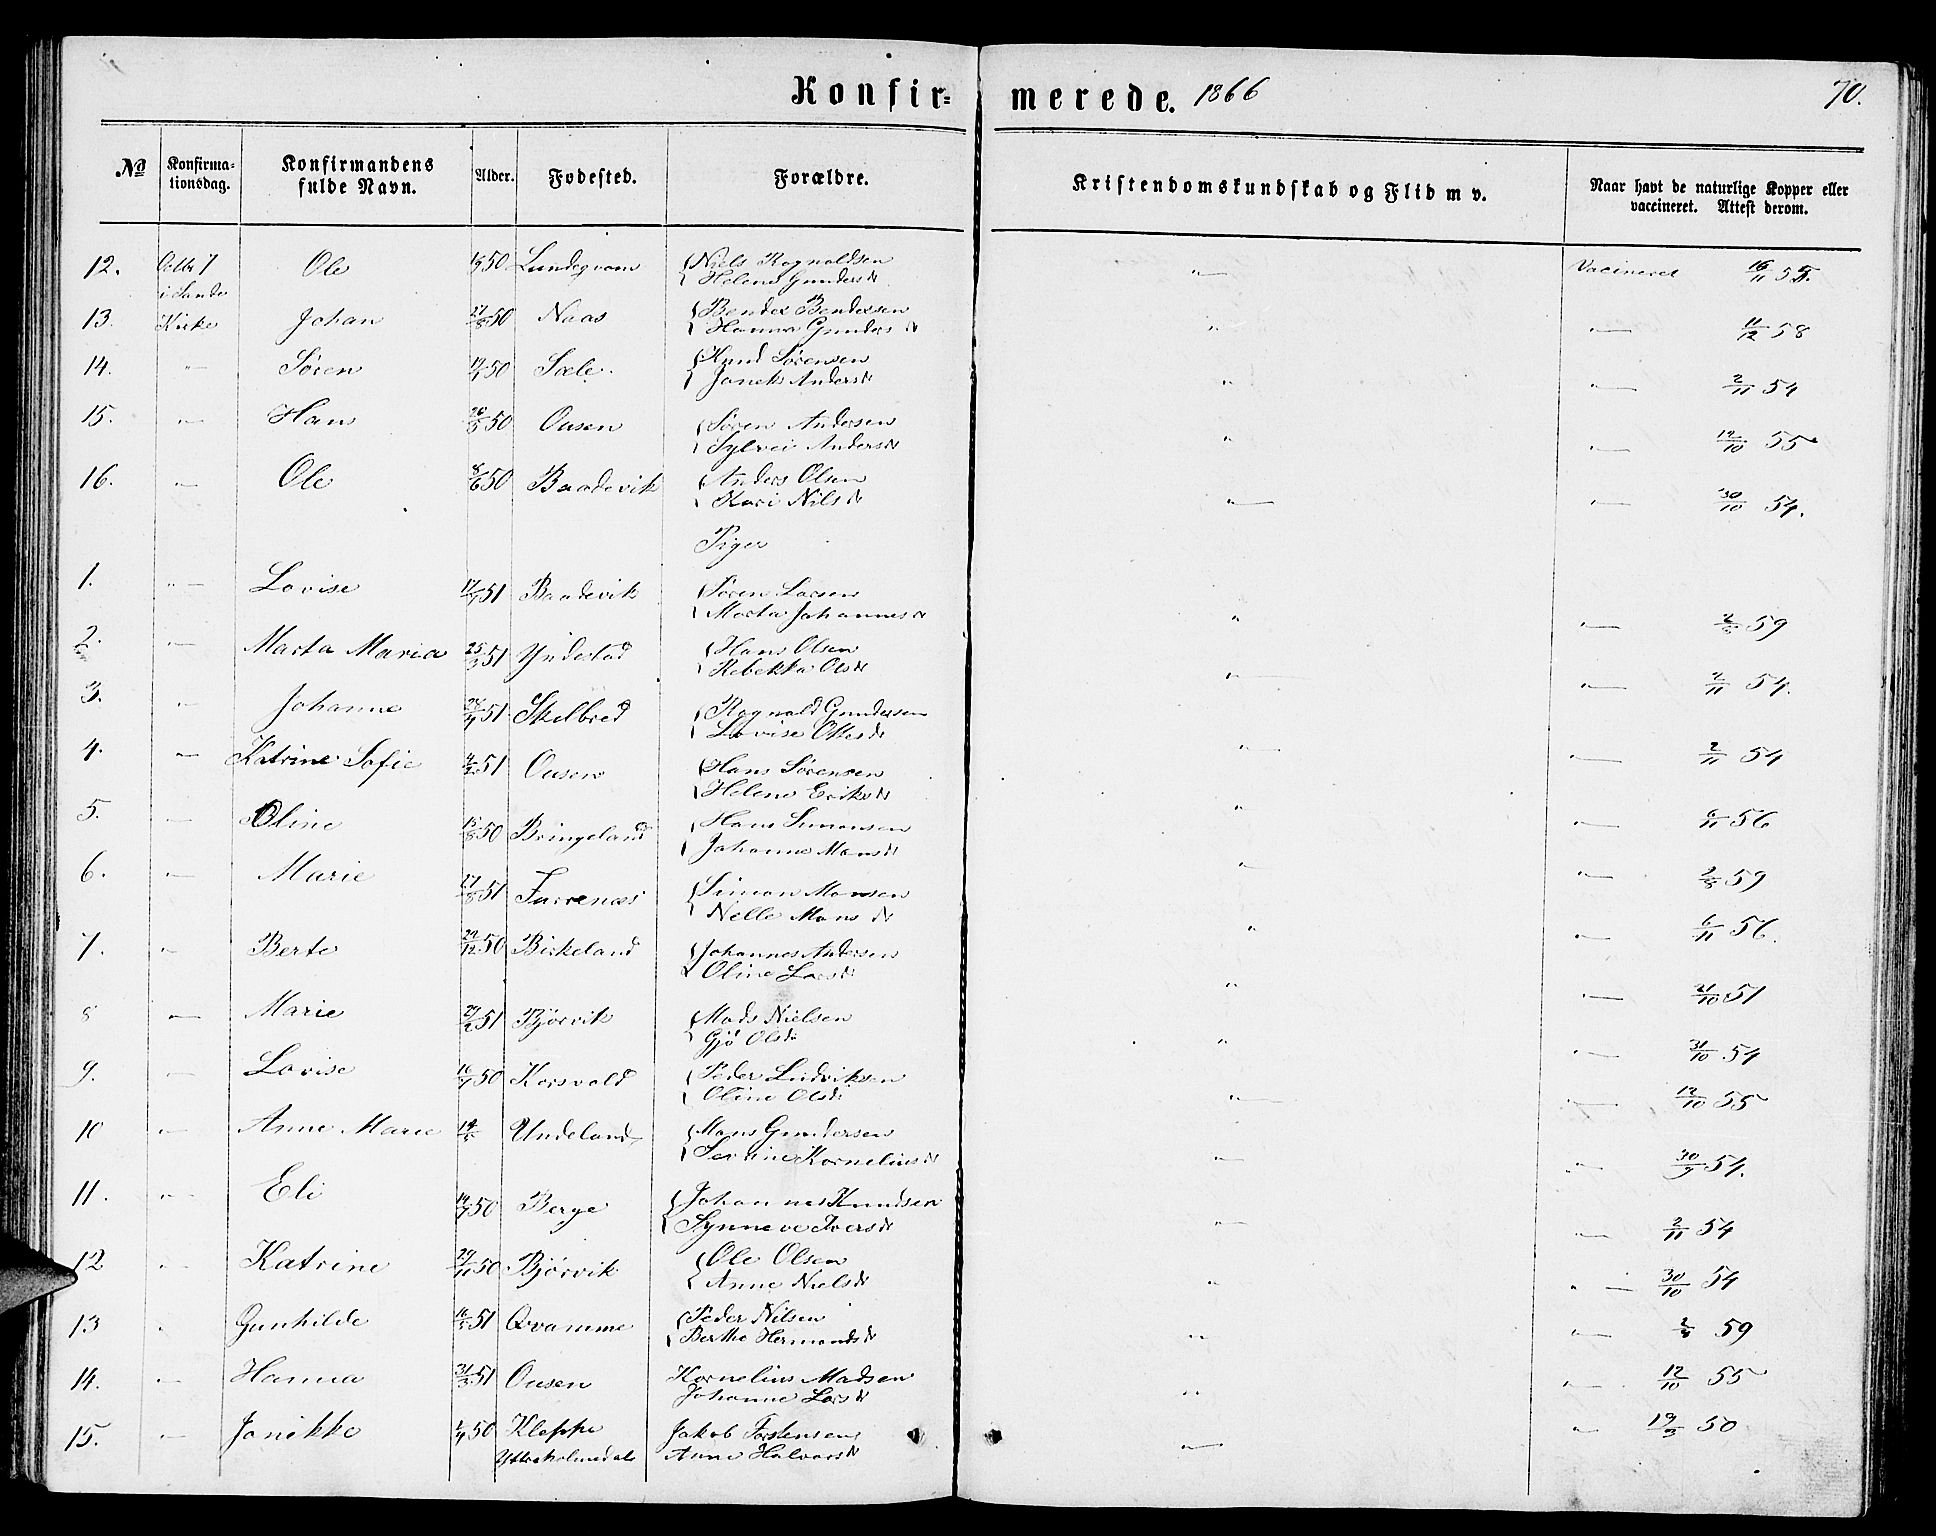 Konfir= merede. 1866 70.
No Konfirma=tionsdag. Konfirmandens fulde Navn. Alder. Fodested. Forældre. Kristendomskundskab og Flid m v. Naar havt de naturlige Kopper eller vaccineret. Attest derom.
12. Octbr 7 Ole 50 Lundeqvam Niels Rognaldsen " Vacineret 16/11 55.
i Sande Helene Gundersdt
13. Kirke Johan 27/8 50 Naas Bendix Bendixsen " — 11/12 58
Hanna Gundersdt
14. " Søren 50 Sæle Knud Sørensen " — 2/11 54
Andersdt
15. " Hans 50 Ousen Søren Andersen " — 12/10 55
Sylvei Andersdt
16. " Ole 8/6 50 Baadevik Anders Olsen " — 30/10 54.
Kari Nilsdt
Piger
1. " Lovise 17/7 51 Baadevik Søren Larsen " — 59
Marta Johannesdt
2. " Marta Maria 25/3 51 Yndestad Hans Olsen " — 2/11 54.
Rebekka Olsdt
3. " Johanne 51 Skilbred Rognald Gundersen " — 2/11 54
Lovise Ottesdt
4. " Katrine Sofie 51 Ousen Hans Sørensen " — 6/11 56
Helene Eriksdt
5. " Oline 15/8 50 Bringeland Hans Simonsen " — 59
Johanne Monsdt
6. " Marie 27/8 51 Furrenæs Simon Monsen " — 6/11 56.
Nelle Monsdt
7. " Berte 50 Birkeland Johannes Andersen " — 21/10 51
Oline Larsdt
8 " Marie 51 Bjørvik Mads Nielsen " — 31/10 54
Gjø Olsdt
9. " Lovise 50 Korsvold Peder Ludviksen " — 12/10 55
Oline Olsdt
10 " Anne Marie Undeland Mons Gundersen " — 30/9 54.
Serine Korneliusdt
11. " Eli 50 Berge Johannes Knudsen " — 2/11 54
Synneve Iversdt
12 " Katrine 29/11 50 Bjørvik Ole Olsen " — 30/10 54
Anne Nielsdt
13 " Gunhilde 51 Qvamme Peder Nilsen " — 59
Berthe Hermandsdt
14. " Hanna 31/3 51 Ousen Kornelius Madsen " — 12/10 55
Johanne Larsdt
15. " Janikke 50 Kleppe Jakob Torstensen " — 50
Yttreholmedals Anne Halvorsdt